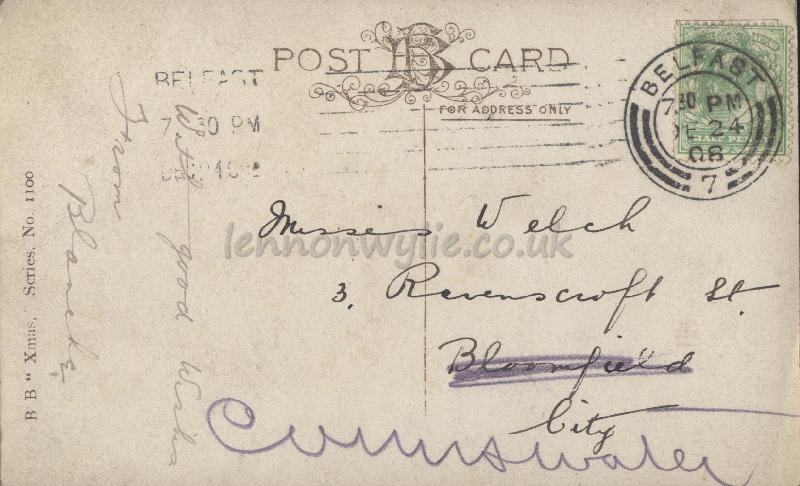 POST CARD
FOR ADDRESS ONLY
BELFAST
7 30 PM
BELFAST
7 30 PM
DE 24
06
7
Misses Welch
3, Ravenscroft St.
Bloomfield
City
With good Wishes
From
Blanche
B B " Xmas, Series, No. 1100
lennonwylie.co.uk